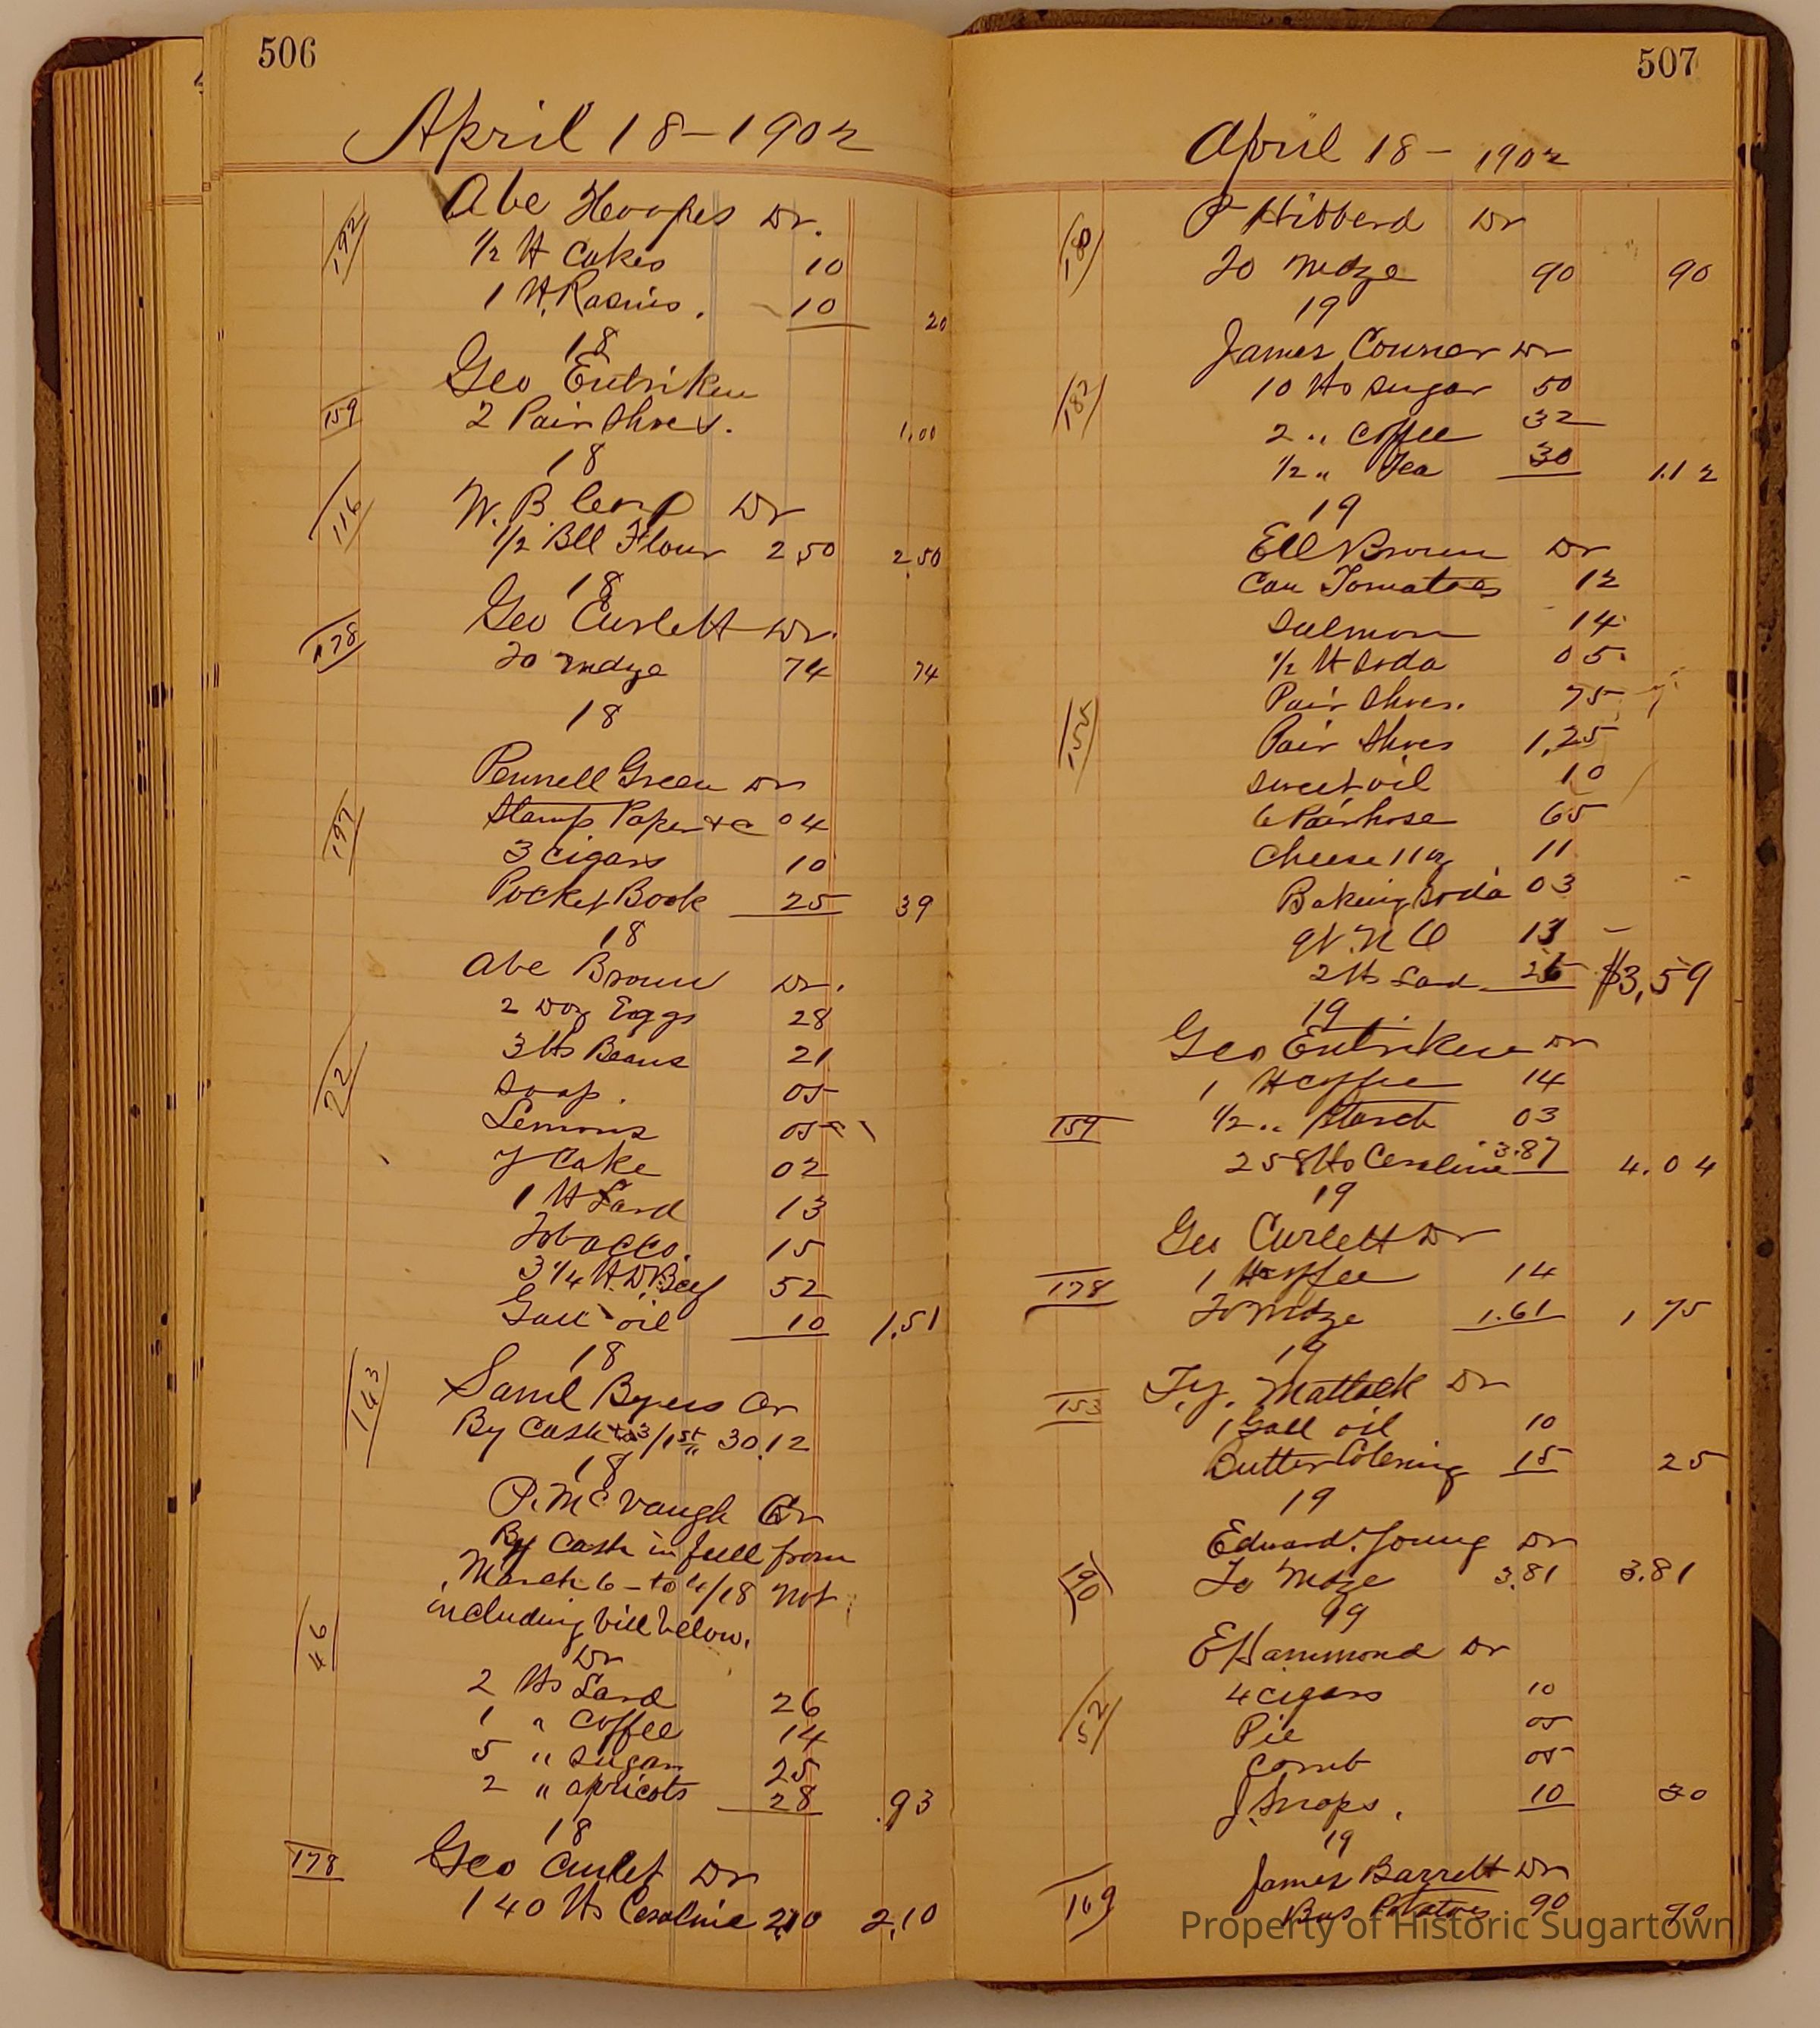 506
April 18 - 1902
Abe Hoopes Dr.
192
1/2 ℔ Cakes 10
1 ℔ Rasins. 10 20
18
Geo Entriken
159
2 Pair Shoes. 1.00
18
116
W. B. Dr
1/2 Bll Flour 2.50 2.50
18
Geo Curlett Dr.
178
To Mdze 74 74
18
Pennell Green Dr
197
Stamp Paper & c 04
3 Cigars 10
Pocket Book 25 39
18
Abe Brown Dr.
2 Doz Eggs 28
3 ℔s Beans 21
22
Soap. 05
Lemons 05
Y Cake 02
1 ℔ Lard 13
Tobacco. 15
3 1/4 ℔ D. Beef 52
Gall oil 10 1.51
18
143
Saml Byers Cr
By Cash to 3/1st 30.12
18
P. McVaugh Cr
By Cash in full from
March 6 - to 4/18 Not
including bill below.
46
Dr
2 ℔s Lard 26
1 " Coffee 14
5 " Sugar 25
2 " apricots 28 .93
18
178
Geo Curlet Dr
140 ℔s Cerealine 2.10 2.10
507
April 18 - 1902
P Hibberd Dr
180
To Mdze 90 90
19
James Conner Dr
182
10 ℔s Sugar 50
2 " Coffee 32
1/2 " Tea 30 1.12
19
Ell Brown Dr
Can Tomatoes 12
Salmon 14
1/2 ℔ Soda 05
Pair Shoes. 75
155
Pair Shoes 1.25
Sweet oil 10
6 Pair hose 65
Cheese 11 oz 11
Baking Soda 03
qt. N O 13
2 ℔s Lard 26 $3.59
19
Geo Entriken Dr
1 ℔ Coffee 14
159
1/2 " Starch 03
258 ℔s Cerealine 3.87 4.04
19
Geo Curlett Dr
178
1 ℔ Coffee 14
To Mdze 1.61 1.75
19
T. J. Matlack Dr
153
1 Gall oil 10
Butter Coloring 15 25
19
Edward Young Dr
190
To Mdze 3.81 3.81
19
E Hammond Dr
52
4 Cigars 10
Pie 05
Comb 05
J. Snaps. 10 30
19
James Barrett Dr
169
Bus Potatoes 90 90
Property of Historic Sugartown